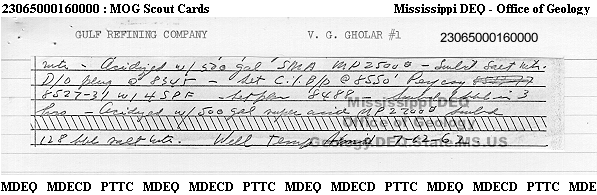 23065000160000 : MOG Scout Cards Mississippi DEQ - Office of Geology
GULF REFINING COMPANY V. G. GHOLAR #1 23065000160000
wtr - Acidized w/500 gal SMA MP 2500# - Swbd salt wtr.
D/O plug @ 8345 - Set C.I.B/P @ 8550' Perf csg
8527-31 w/4 SPF - Set pkr 8488 - Swbd 3
hrs - Acidized w/500 gal super acid MP 2700# Swbd
Mississippi DEQ
Office of Geology
128 bbl salt wtr. Well Temp 7-12-62
GeologyDEQ.State.MS.US
MDEQ MDECD PTTC MDEQ MDECD PTTC MDEQ MDECD PTTC MDEQ MDECD PTTC MDEQ